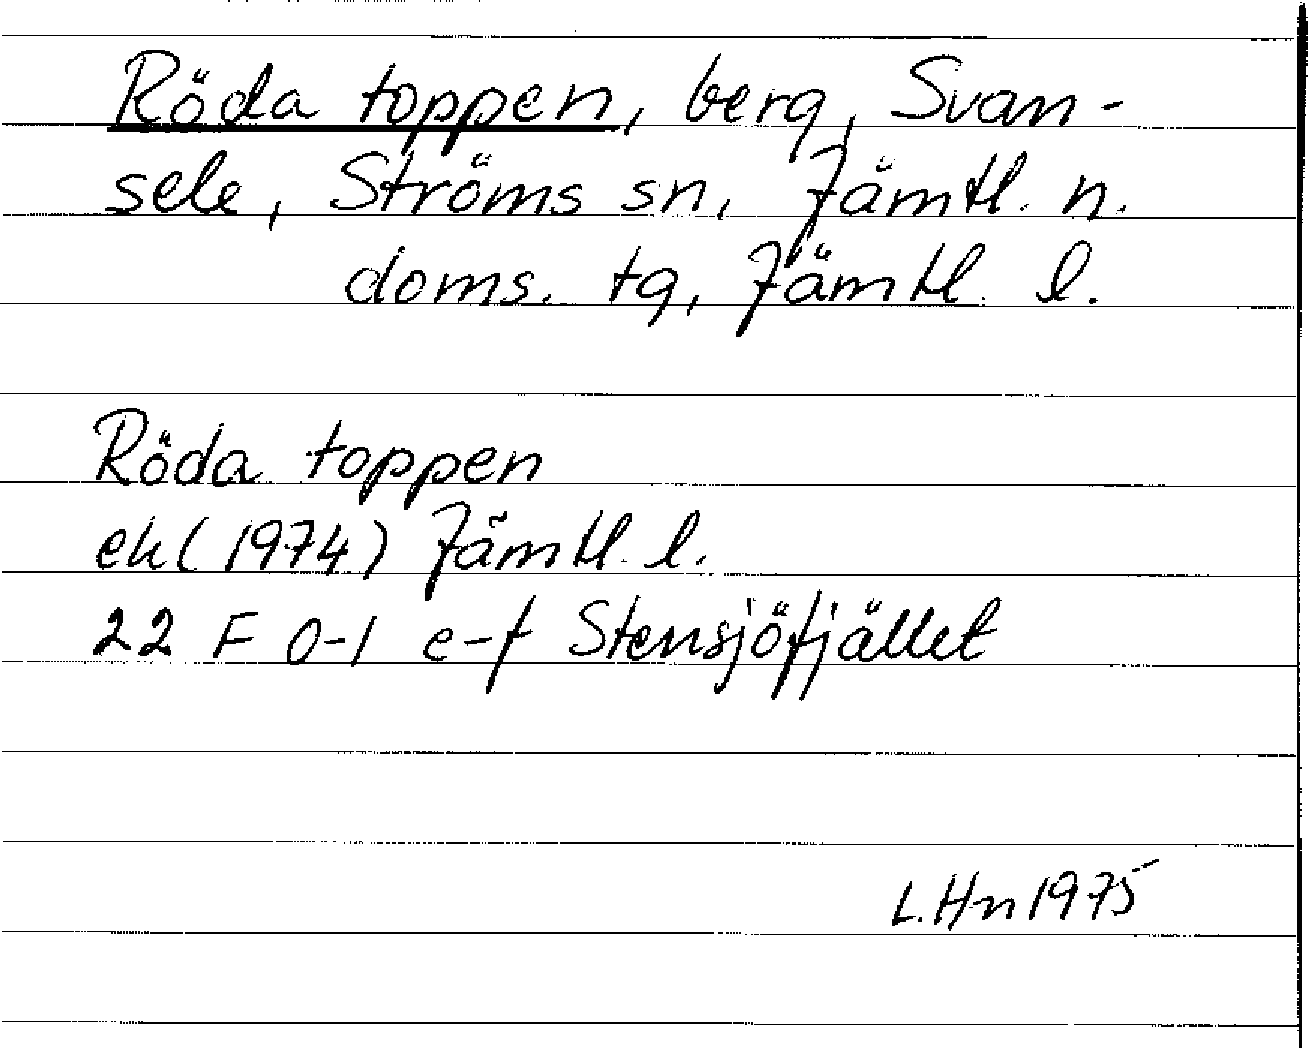 Röda toppen, berg, Svan-
sele, Ströms sn, Jämtl. n.
doms. tg, Jämtl. l.
Röda toppen
ek (1974) Jämtl. l.
22 F 0-1 e-f Stensjöfjället
L. Hn 1975